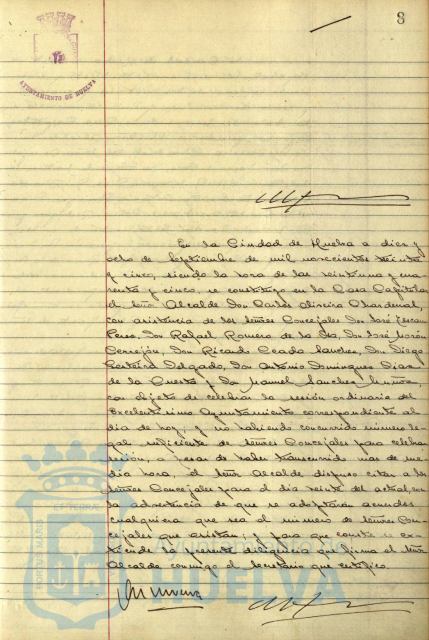 8
AYUNTAMIENTO DE HUELVA
En la Ciudad de Huelva a diez y
ocho de Septiembre de mil novecientos treinta
y cinco, siendo la hora de las veintiuna y cua-
renta y cinco, se constituyó en la Casa Capitular
el Señor Alcalde Don Carlos Oliveira Chardenal,
con asistencia de los Señores Concejales Don José
Perez, Don Rafael Romero de la Don José Morón
Cerrejón, Don Ricardo Sanchez, Don Diego
Delgado, Don Antonio Dominguez Diaz
de la Cuesta y Don Manuel Sanchez
con objeto de celebrar la sesión ordinaria del
Excelentísimo Ayuntamiento correspondiente al
día de hoy; y no habiendo concurrido número le-
gal suficiente de Señores Concejales para celebrar
sesión, a pesar de haber transcurrido más de me-
dia hora, el Señor Alcalde dispuso citar a los
Señores Concejales para el día veinte del actual, con
la advertencia de que se adoptarán acuerdos
cualquiera que sea el número de Señores Con-
cejales que asistan; y para que conste se ex-
tiende la presente diligencia que firma el Señor
Alcalde conmigo el Secretario que certifico.
PORTUS MARIS
ET TERRAE
HUELVA